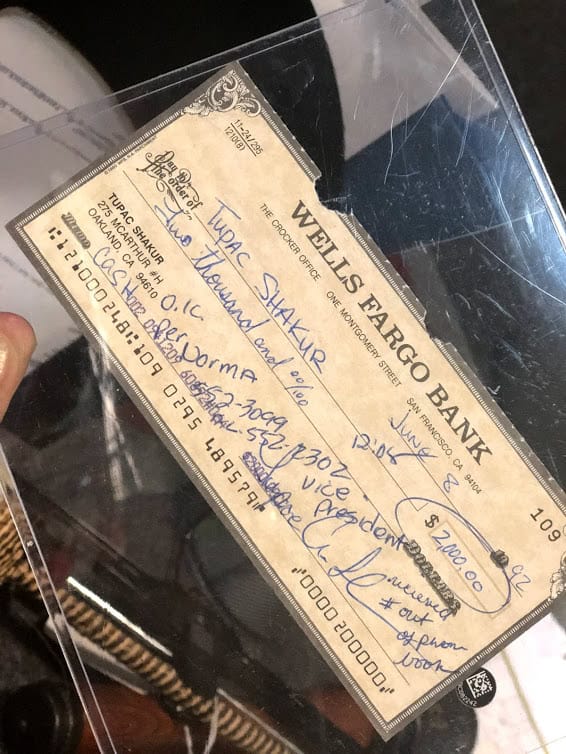 WELLS FARGO BANK
THE CROCKER OFFICE ONE MONTGOMERY STREET SAN FRANCISCO, CA 94104
109
11-24/295
1210(8)
June 8 19 92
12:05
Pay to
the order of
TUPAC SHAKUR
$ 2,000.00
Two Thousand and 00/100
DOLLARS
TUPAC SHAKUR
275 MCARTHUR #H
OAKLAND, CA 94610
O.K.
per Norma
552-3099
552-2302
vice
president
received
# out
of phone
book
Memo
121000248 109 0295 489579
0000200000